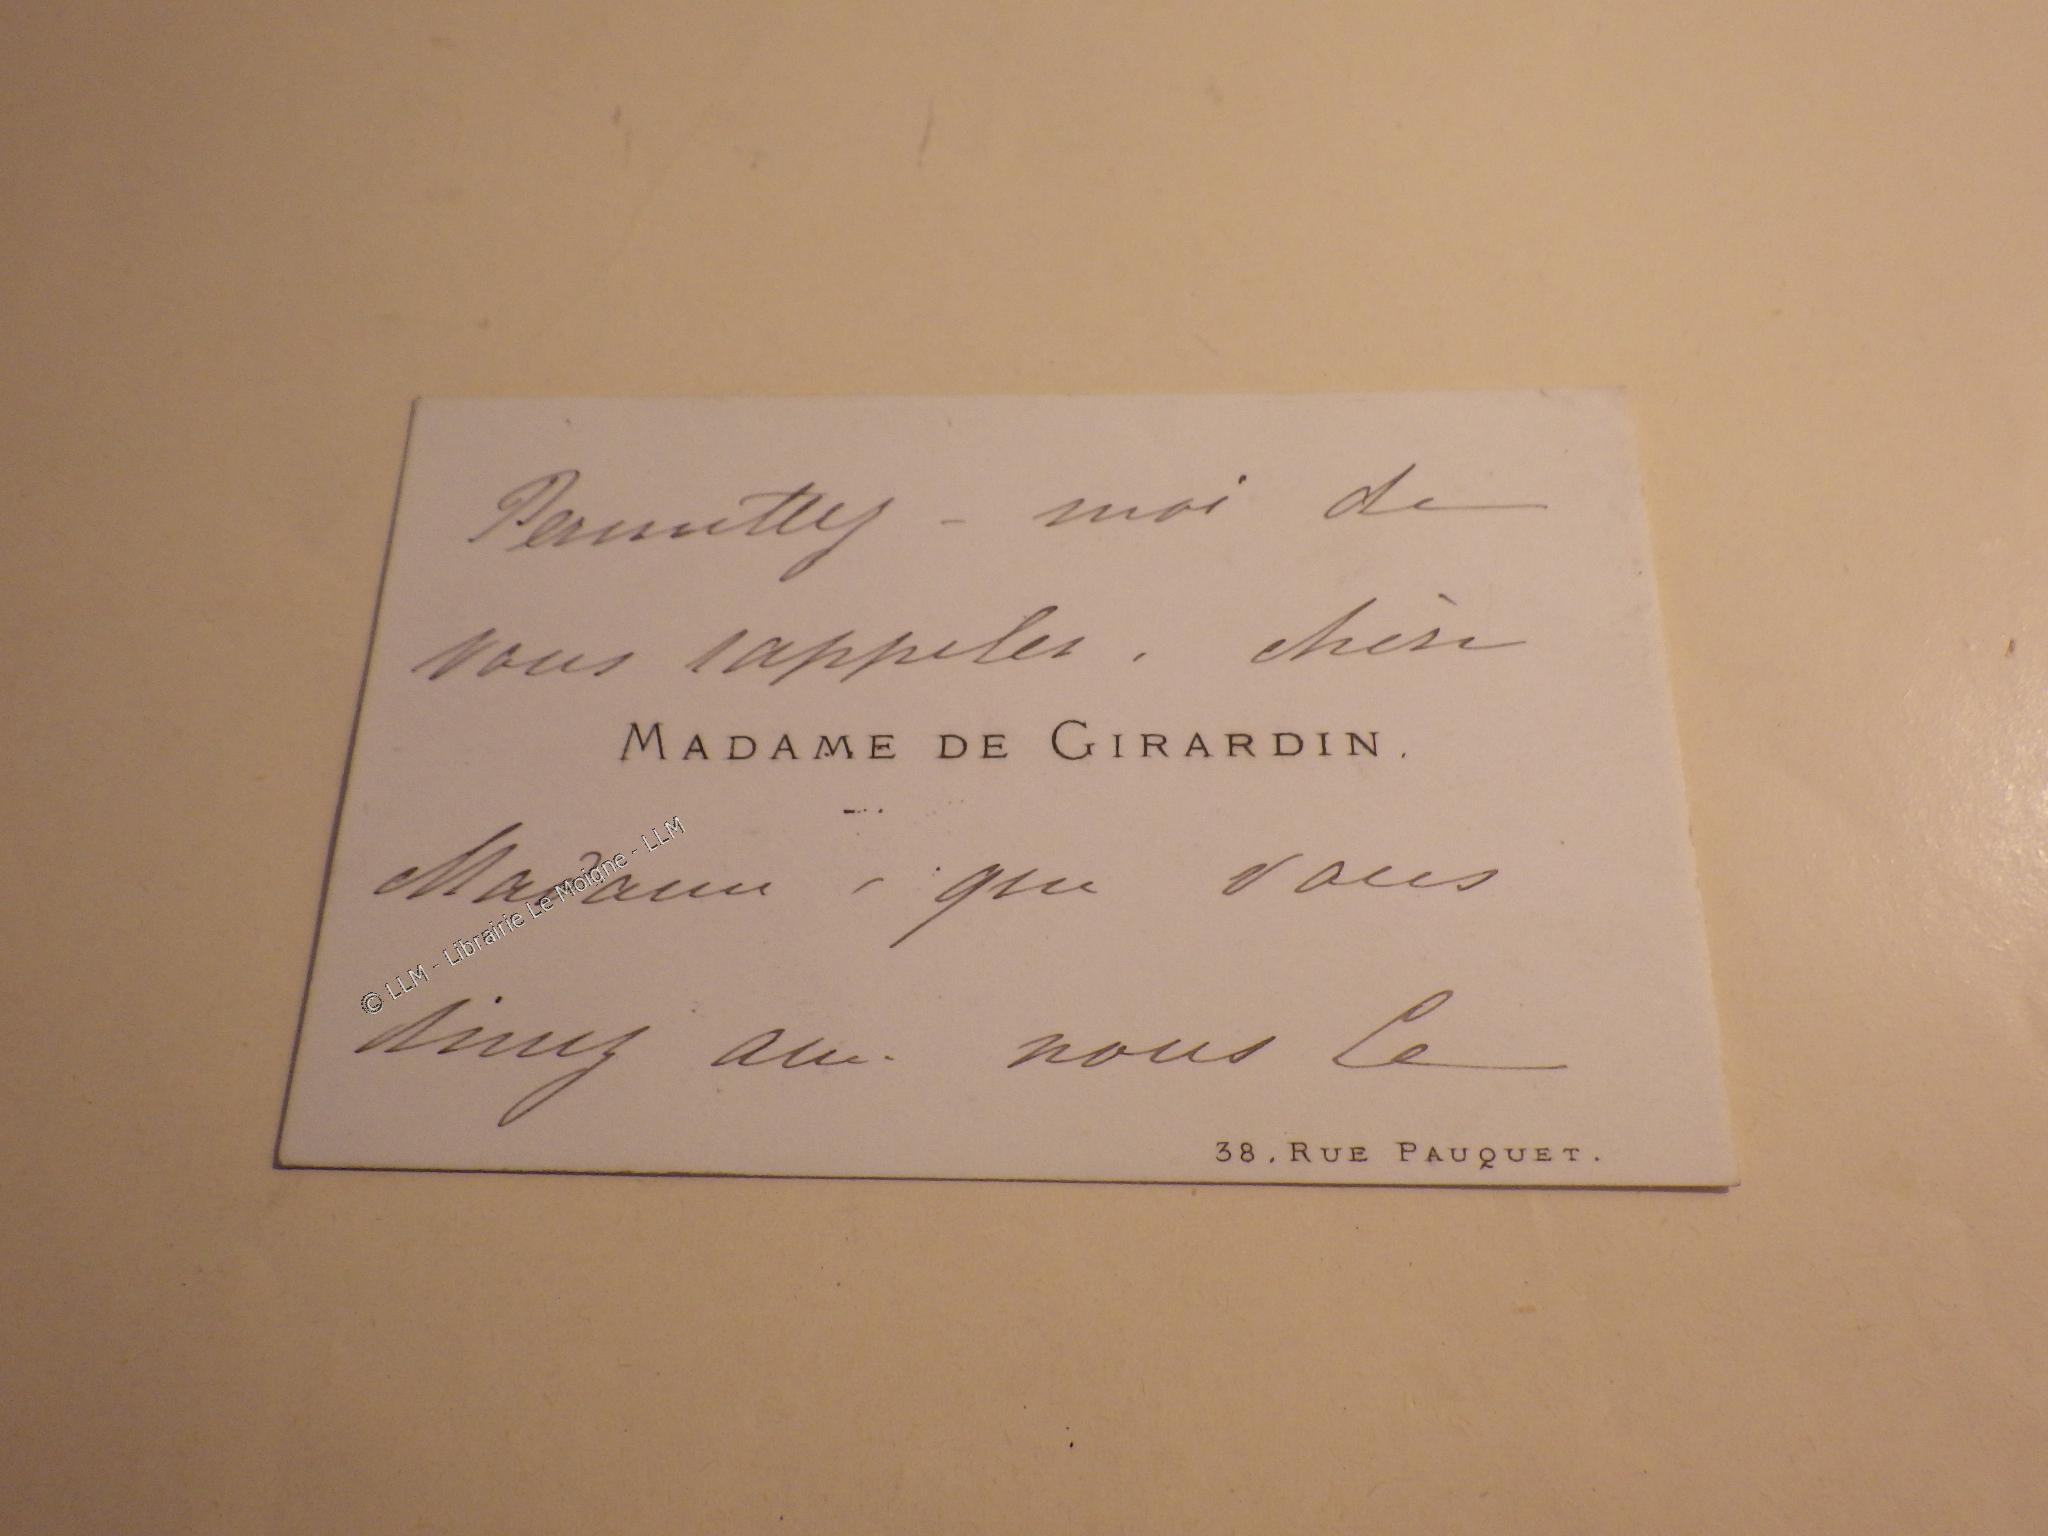 Permettez - moi de
vous rappeler, chère
MADAME DE GIRARDIN.
Madame, que vous
dinez avec nous le
38, RUE PAUQUET.
© LLM - Librairie Le Moigne - LLM